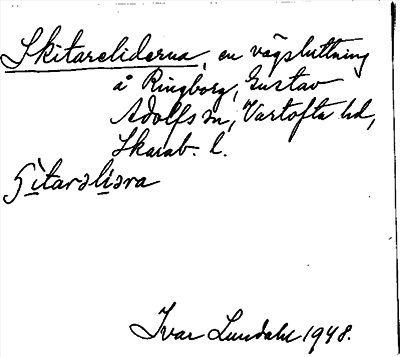 Skitareliderna, en vägsluttning
å Ringborg, Gustav
Adolfs sn, Vartofta hd,
Skarab. l.
ʃìtarəliəra
Ivar Lundahl 1948.